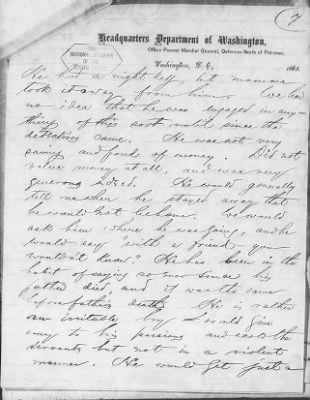 (7
Headquarters Department of Washington,
Office Provost Marshal General, Defences North of Potomac,
Washington, D. C., 186
THE NATIONAL ARCHIVES OF
He had a night key, but mamma
took it away from him. We had
no idea that he was engaged in any-
thing of this sort until since the
detectives came. He was not very
saving and fond of money. Did not
value money at all, and was very
generous indeed. He would generally
tell us when he stayed away that
he would not be home. We would
ask him where he was going, and he
would say "with a friend - you
wouldn't know." He has been in the
habit of saying so ever since his
father died, and it was the same
upon father's death. He is rather
an irritable boy & would give
away to his passions and scold the
servants but not in a violent
manner. He would get just a